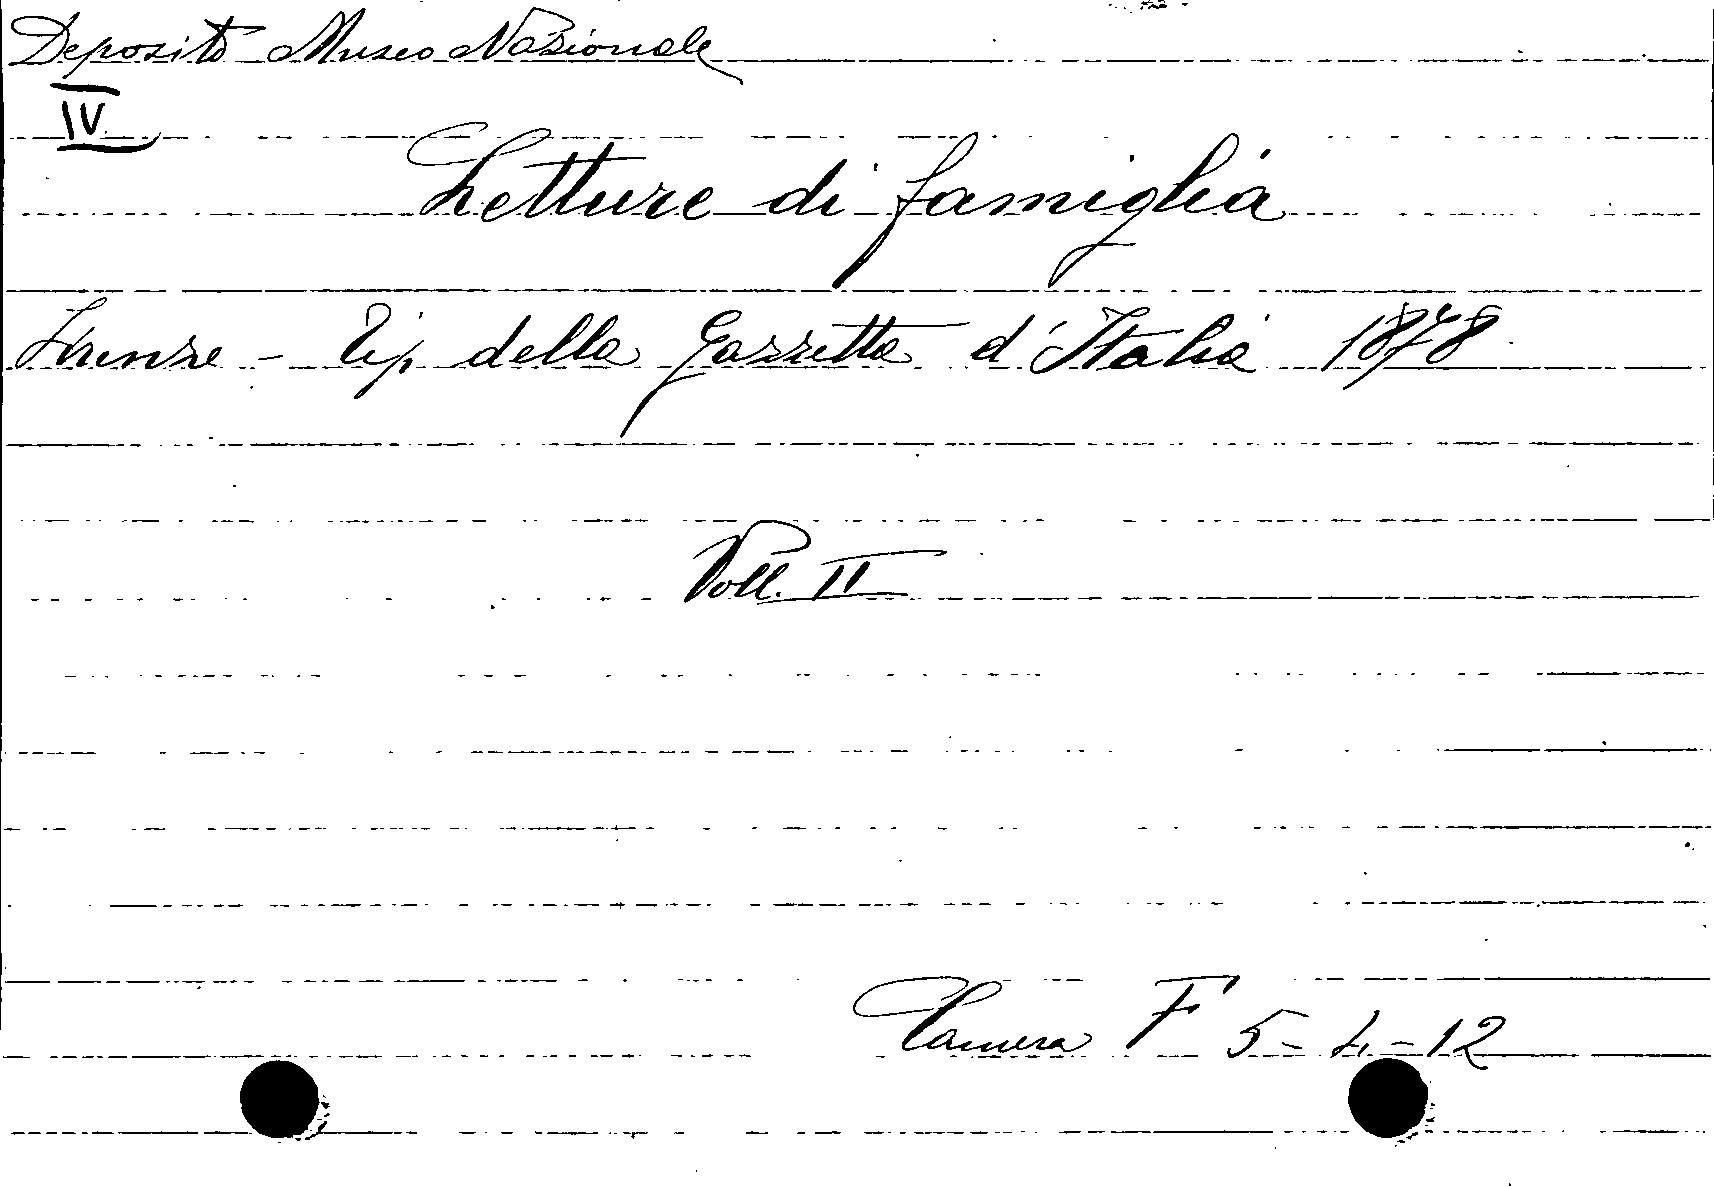 Deposito Museo Nazionale
IV
Letture di famiglia
Firenze - Tip. della Gazzetta d'Italia 1878
Voll. II
Camera F 5-4-12